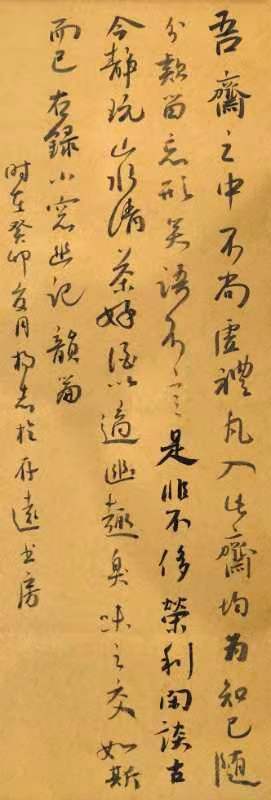 吾齋之中不尚虛禮凡入此齋均為知己随
分款留忘形笑語不言是非不侈榮利閑談古
今靜玩山水清茶好酒以適幽趣臭味之交如斯
而已右錄小窓幽記韻篇
时在癸卯夏月楊志於存遠书房